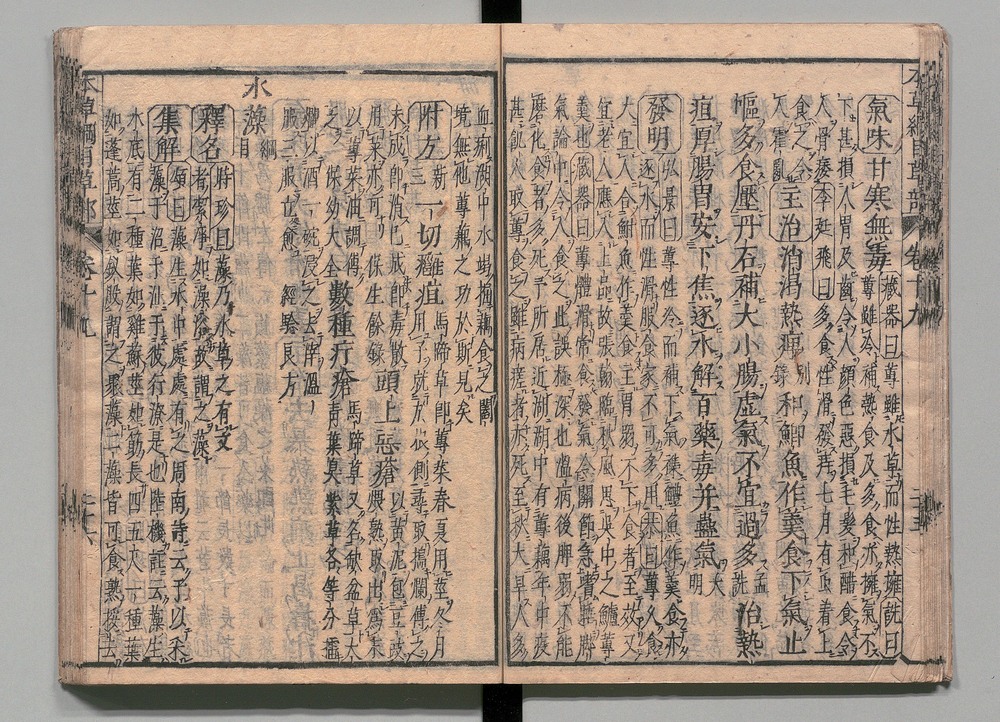 氣味甘寒無毒 藏器曰蓴雖水草而性熱擁詵曰
蓴雖冷補熱食及多食亦擁氣不
下甚損人胃及齒令人顏色惡損毛髮和醋食令
人骨痿李延飛曰多食性滑發痔七月有虫着上
食之令
人霍亂主治消渴熱痺別錄和鯽魚作羹食下氣止
嘔多食壓丹石補大小腸虛氣不宜過多孟詵治熱
疽厚腸胃安下焦逐水解百藥毒并蠱氣大明
發明弘景曰蓴性冷而補下氣雜鱧魚作羹食亦
逐水而性滑服食家不可多用恭曰蓴久食
大宜人合鮒魚作羹食主胃弱不下食者至效又
宜老人應入上品故張翰臨秋風思吳中之鱸蓴
也藏器曰蓴體滑常食發氣令關節急嗜睡脚
氣論中令人食之此誤極深也溫病後脾弱不能
磨化食者多死予所居近湖湖中有蓴藕年中疫
甚飢人取蓴食之雖病瘥者亦死至秋大旱人多
血痢湖中水竭掘藕食之闔
境無他蓴藕之功於斯見矣
附方新三一切癰疽馬蹄草即蓴菜春夏用莖冬月
用子就於根側尋取搗爛傅之
未成即消已成即毒散
用葉亦可保生餘錄頭上惡瘡以黃泥包豆豉
煨熟取出爲末
以蓴菜油調傅
之保幼大全數種疔瘡馬蹄草又名缺盆草大
青葉臭紫草各等分擂
爛以酒一碗浸之去滓溫
服三服立愈經驗良方
水藻綱目
釋名時珍曰藻乃水草之有文
者潔淨如澡浴故謂之藻
集解頌曰藻生水中處處有之周南詩云于以采
藻于沼于沚于彼行潦是也陸機註云藻生
水底有二種葉如雞蘇莖如筯長四五尺一種葉
如蓬蒿莖如釵股謂之聚藻二藻皆可食熟挼去